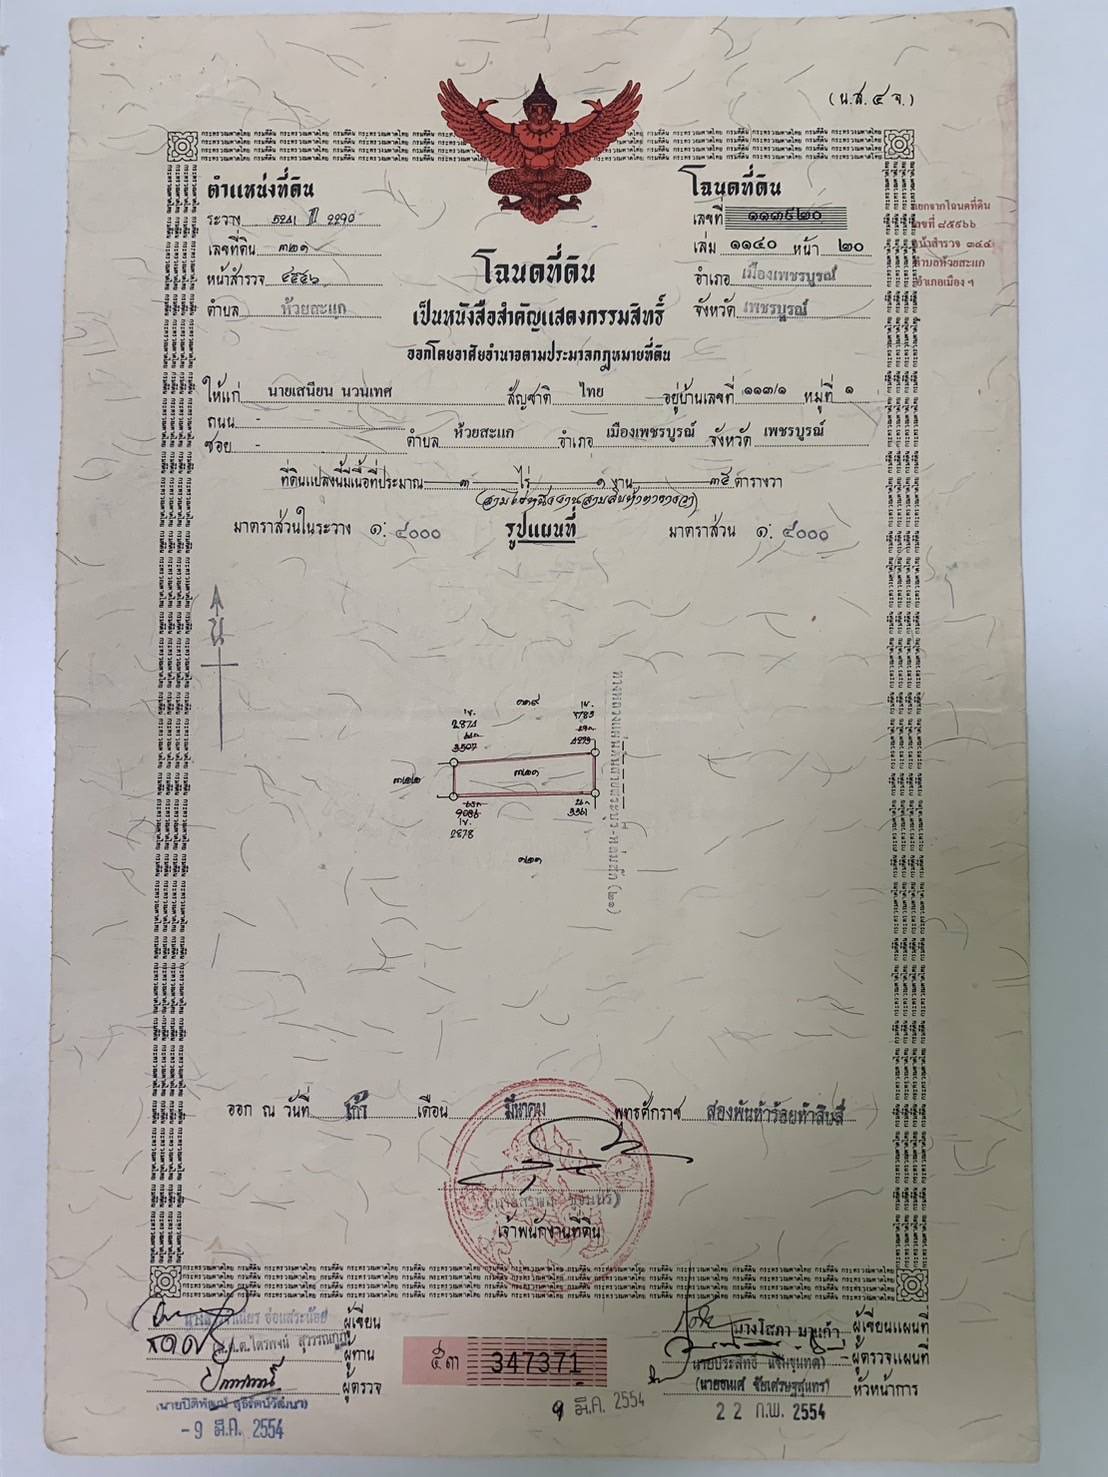 (น.ส. ๔ จ.)
ตำแหน่งที่ดิน
ระวาง 5241 II 2290
เลขที่ดิน ๓๒๑
หน้าสำรวจ ๔๕๔๖
ตำบล ห้วยสะแก
โฉนดที่ดิน
เลขที่ ๑๑๓๙๒๐
เล่ม ๑๑๔๐ หน้า ๒๐
อำเภอ เมืองเพชรบูรณ์
จังหวัด เพชรบูรณ์
แยกจากโฉนดที่ดิน
เลขที่ ๘๕๙๖๖
หน้าสำรวจ ๓๔๔
ตำบลห้วยสะแก
อำเภอเมือง ฯ
โฉนดที่ดิน
เป็นหนังสือสำคัญแสดงกรรมสิทธิ์
ออกโดยอาศัยอำนาจตามประมวลกฎหมายที่ดิน
ให้แก่ นายเสนียน นวนเทศ สัญชาติ ไทย อยู่บ้านเลขที่ ๑๑๓/๑ หมู่ที่ ๑
ถนน -
ซอย - ตำบล ห้วยสะแก อำเภอ เมืองเพชรบูรณ์ จังหวัด เพชรบูรณ์
ที่ดินแปลงนี้มีเนื้อที่ประมาณ ๓ ไร่ ๑ งาน ๓๕ ตารางวา
(สามไร่หนึ่งงานสามสิบห้าตารางวา)
มาตราส่วนในระวาง ๑: ๔๐๐๐ รูปแผนที่ มาตราส่วน ๑: ๔๐๐๐
น
๓๒๒
๓๒๑
2878
3361
ทางหลวงแผ่นดินสายสระบุรี-หล่มสัก (๒๑)
ออก ณ วันที่ เก้า เดือน มีนาคม พุทธศักราช สองพันห้าร้อยห้าสิบสี่
เจ้าพนักงานที่ดิน
ผู้เขียน
ผู้ทาน
ผู้ตรวจ
- 9 มี.ค. 2554
๕๓ 347371
9 มี.ค. 2554
นางโสภา มาแก้ว ผู้เขียนแผนที่
ผู้ตรวจแผนที่
หัวหน้าการ
2 2 ก.พ. 2554